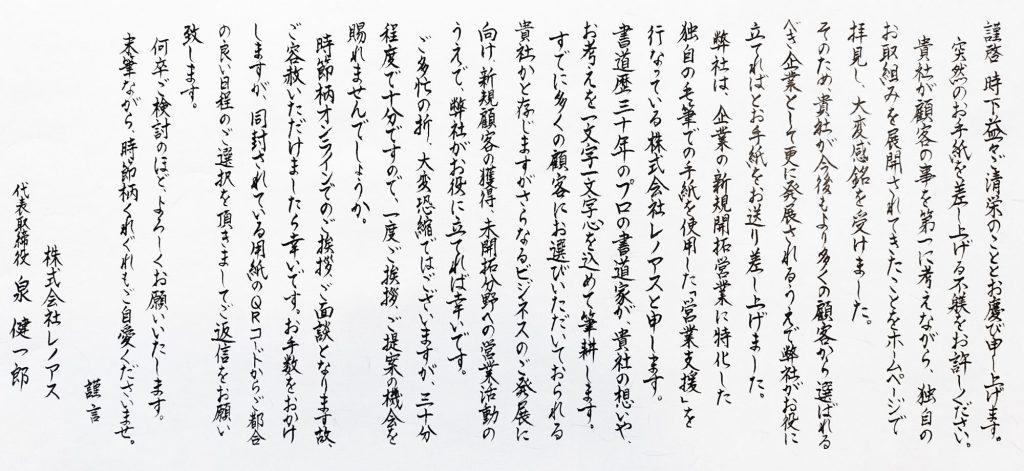 謹啓 時下益々ご清栄のこととお慶び申し上げます。
突然のお手紙を差し上げる不躾をお許しください。
貴社が顧客の事を第一に考えながら、独自の
お取組みを展開されてきたことをホームページで
拝見し、大変感銘を受けました。
そのため、貴社が今後もより多くの顧客から選ばれる
べき企業として更に発展されるうえで弊社がお役に
立てればとお手紙をお送り差し上げました。
弊社は、企業の新規開拓営業に特化した
独自の毛筆での手紙を使用した「営業支援」を
行なっている株式会社レノアスと申します。
書道歴三十年のプロの書道家が、貴社の想いや、
お考えを一文字一文字心を込めて筆耕します。
すでに多くの顧客にお選びいただいておられる
貴社かと存じますがさらなるビジネスのご発展に
向け、新規顧客の獲得、未開拓分野への営業活動の
うえで、弊社がお役に立てれば幸いです。
ご多忙の折、大変恐縮ではございますが、三十分
程度で十分ですので、一度ご挨拶、ご提案の機会を
賜れませんでしょうか。
時節柄オンラインでのご挨拶、ご面談となります故、
ご容赦いただけましたら幸いです。お手数をおかけ
しますが、同封されている用紙のQRコードからご都合
の良い日程のご選択を頂きましてご返信をお願い
致します。
何卒ご検討のほどよろしくお願いいたします。
末筆ながら、時節柄くれぐれもご自愛くださいませ。
謹言
株式会社レノアス
代表取締役 泉 健一郎